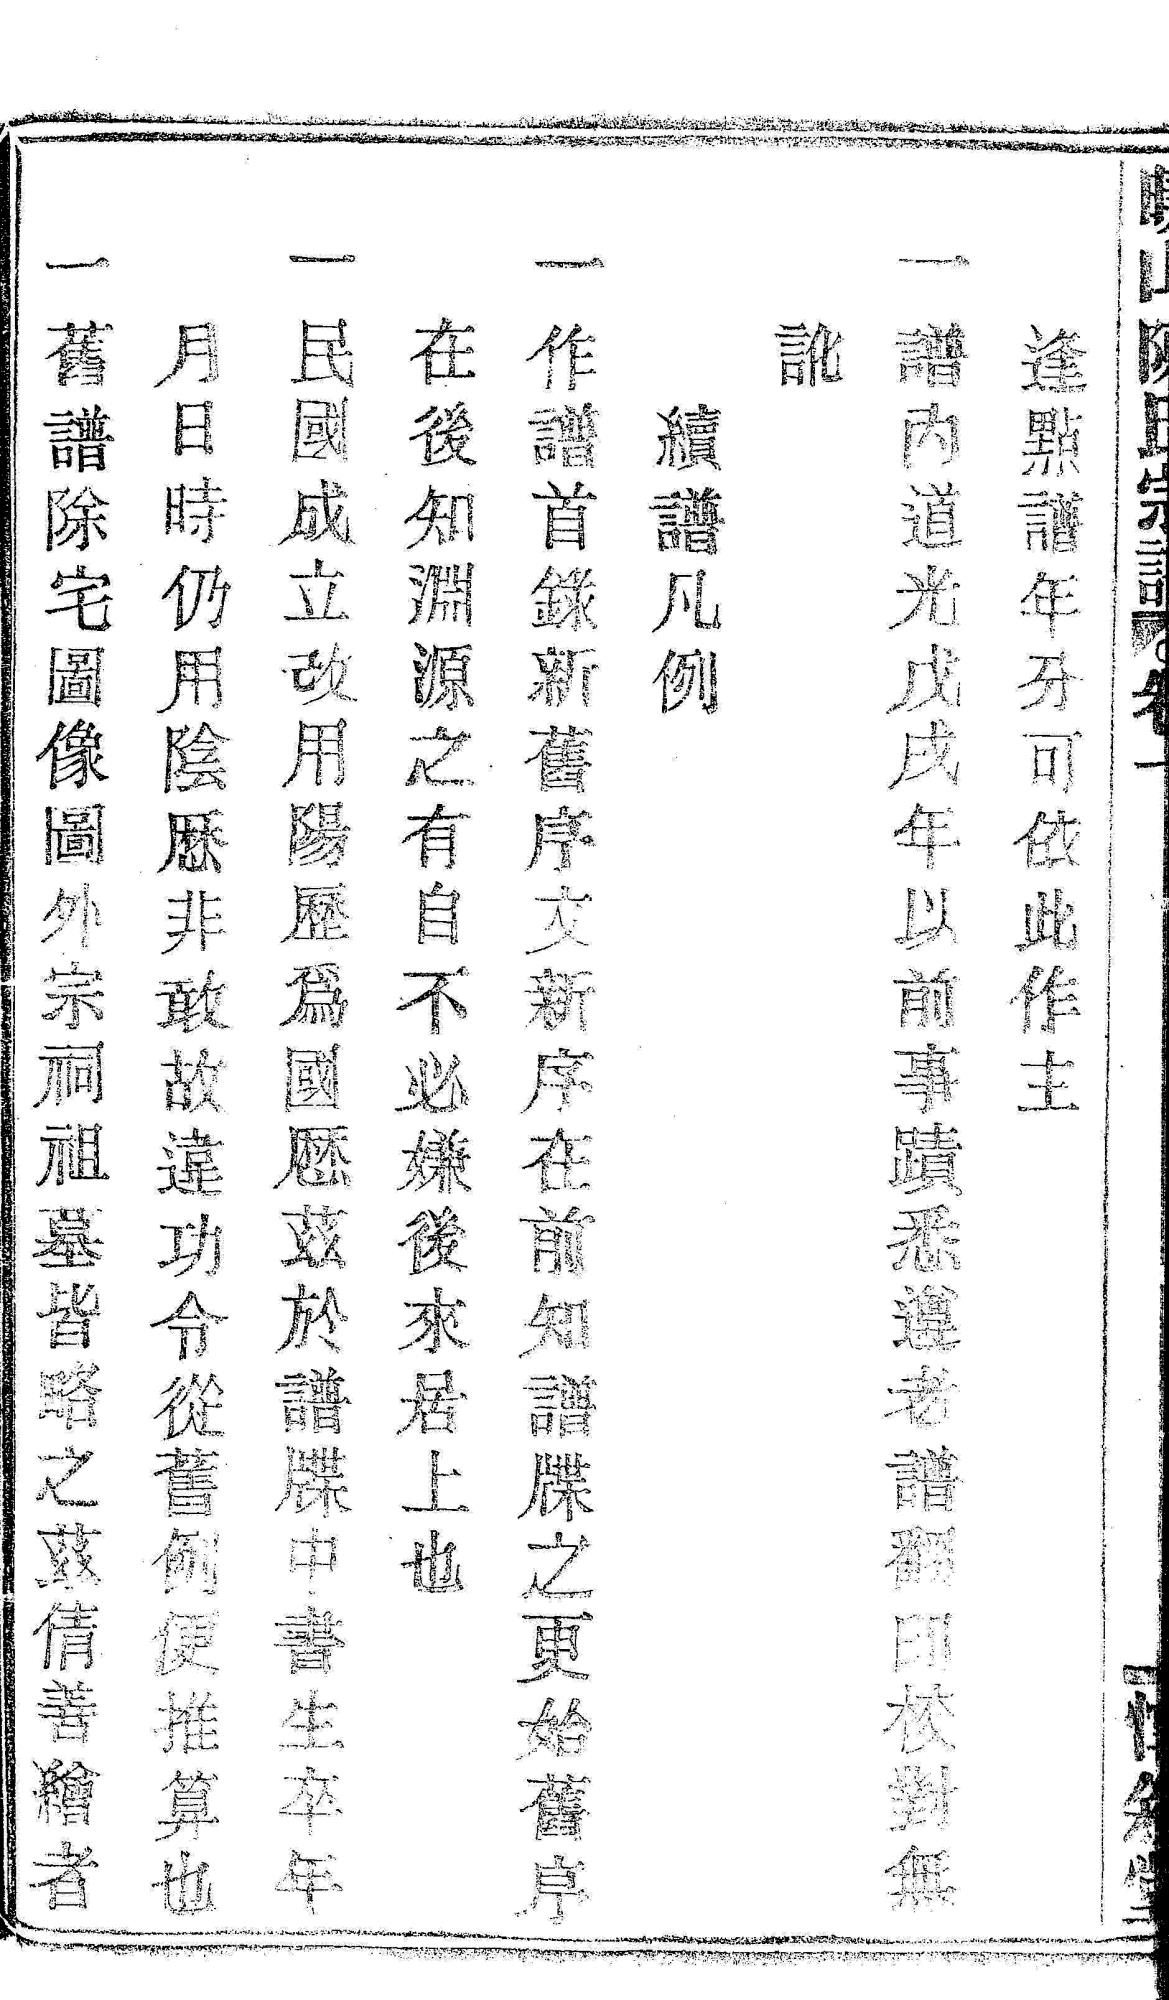 山陳氏宗譜 卷一
逢點譜年分可依此作主
一 譜內道光戊戌年以前事蹟悉遵老譜翻印校對無
訛
續譜凡例
一 作譜首錄新舊序文新序在前知譜牒之更始舊序
在後知淵源之有自不必嫌後來居上也
一 民國成立改用陽歷爲國厯茲於譜牒中書生卒年
月日時仍用陰厯非敢故違功令從舊例便推算也
一 舊譜除宅圖像圖外宗祠祖墓皆略之茲倩善繪者